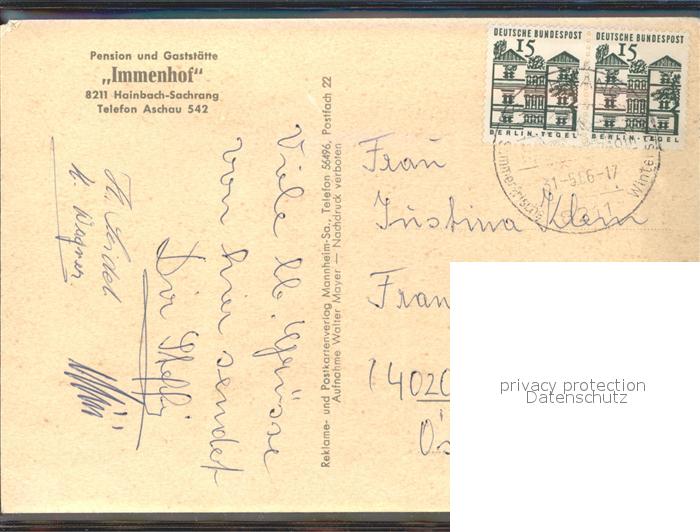 Pension und Gaststätte
„Immenhof"
8211 Hainbach-Sachrang
Telefon Aschau 542
Viele lb. Grüsse
von hier sendet
Dir Steffi
H. Seidel
M. Wagner
Reklame- und Postkartenverlag Mannheim-Sa., Telefon 56496, Postfach 22
Aufnahme Walter Mayer — Nachdruck verboten
DEUTSCHE BUNDESPOST
15
BERLIN-TEGEL
DEUTSCHE BUNDESPOST
15
BERLIN-TEGEL
-17
Frau
Justina Klein
Fran
(4020
Ös
privacy protection
Datenschutz